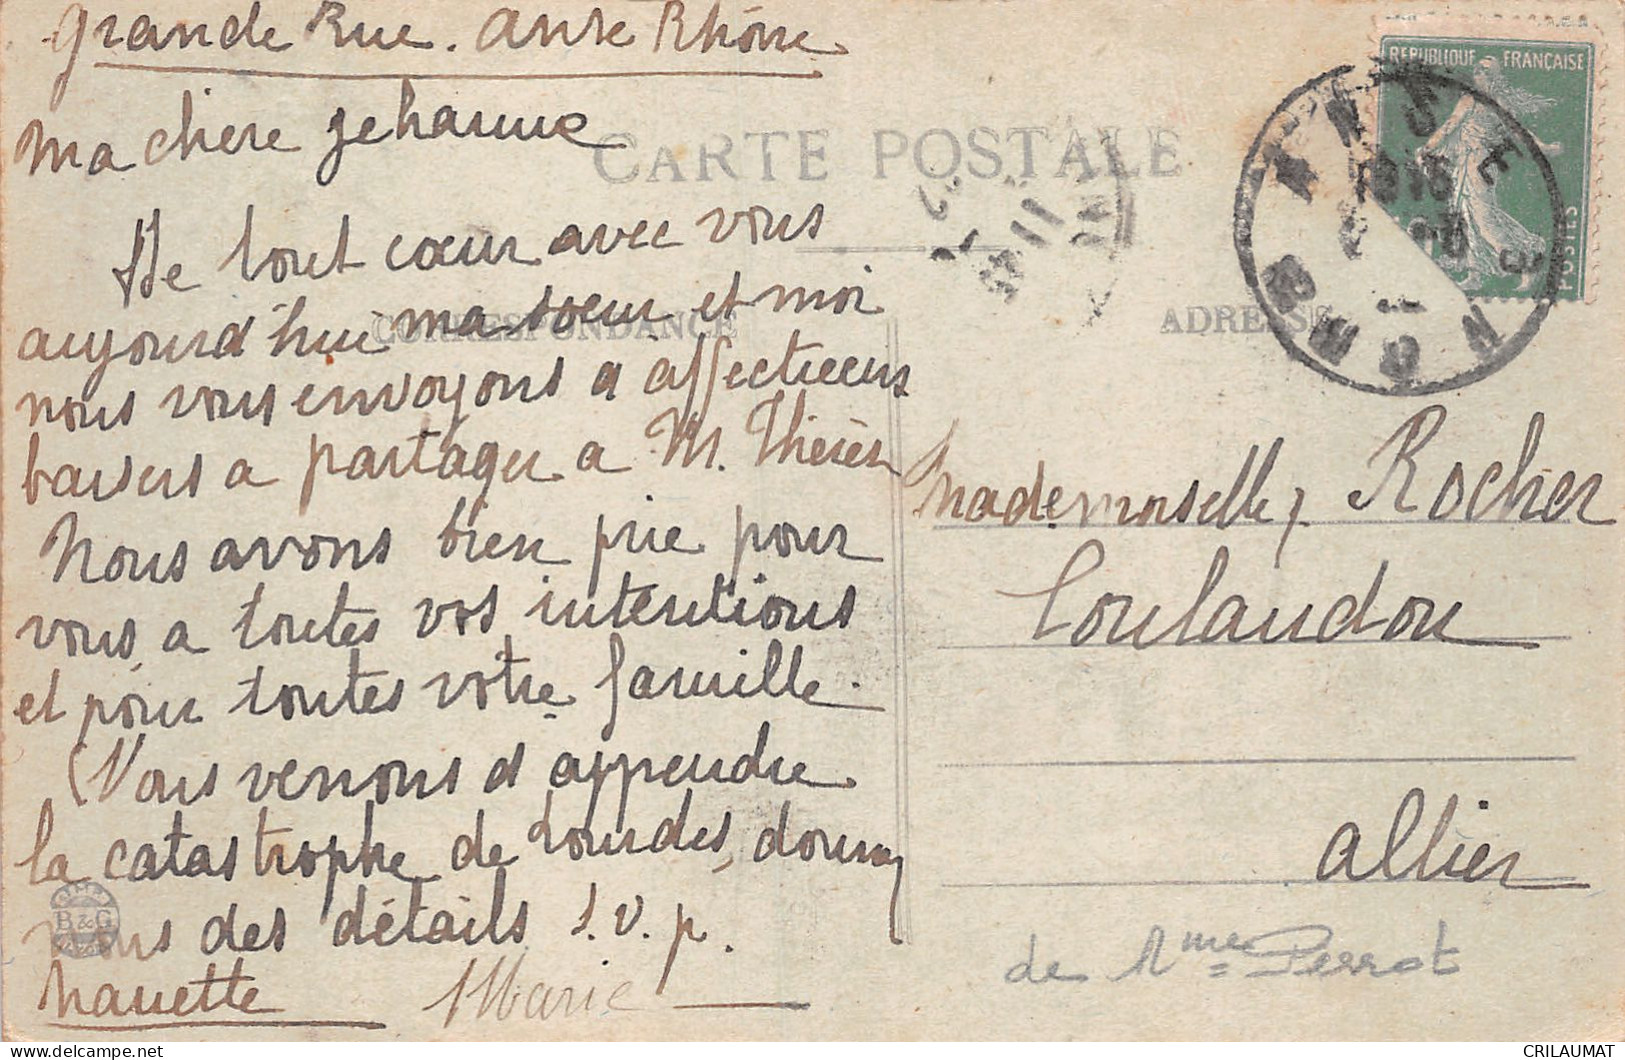 Grande Rue. Anse Rhône
Ma chere Jehanne
CARTE POSTALE
De tout cœur avec vous
aujourd'hui ma soeur et moi
CORRESPONDANCE
nous vous envoyons d affectueux
baisers a partager a M. Thérès
Nous avons bien prie pour
vous, a toutes vos intentions
et pour toutes votre famille.
(Nous venons d apprendre
la catastrophe de Lourdes, donnez
nous des détails S. V. p.
Nanette Marie
B & G
REPUBLIQUE FRANÇAISE
POSTES
ANSE
RHONE
ADRESSE
Mademoiselle Rocher
Coulandon
Allier
de Mme Perrot
CRILAUMAT